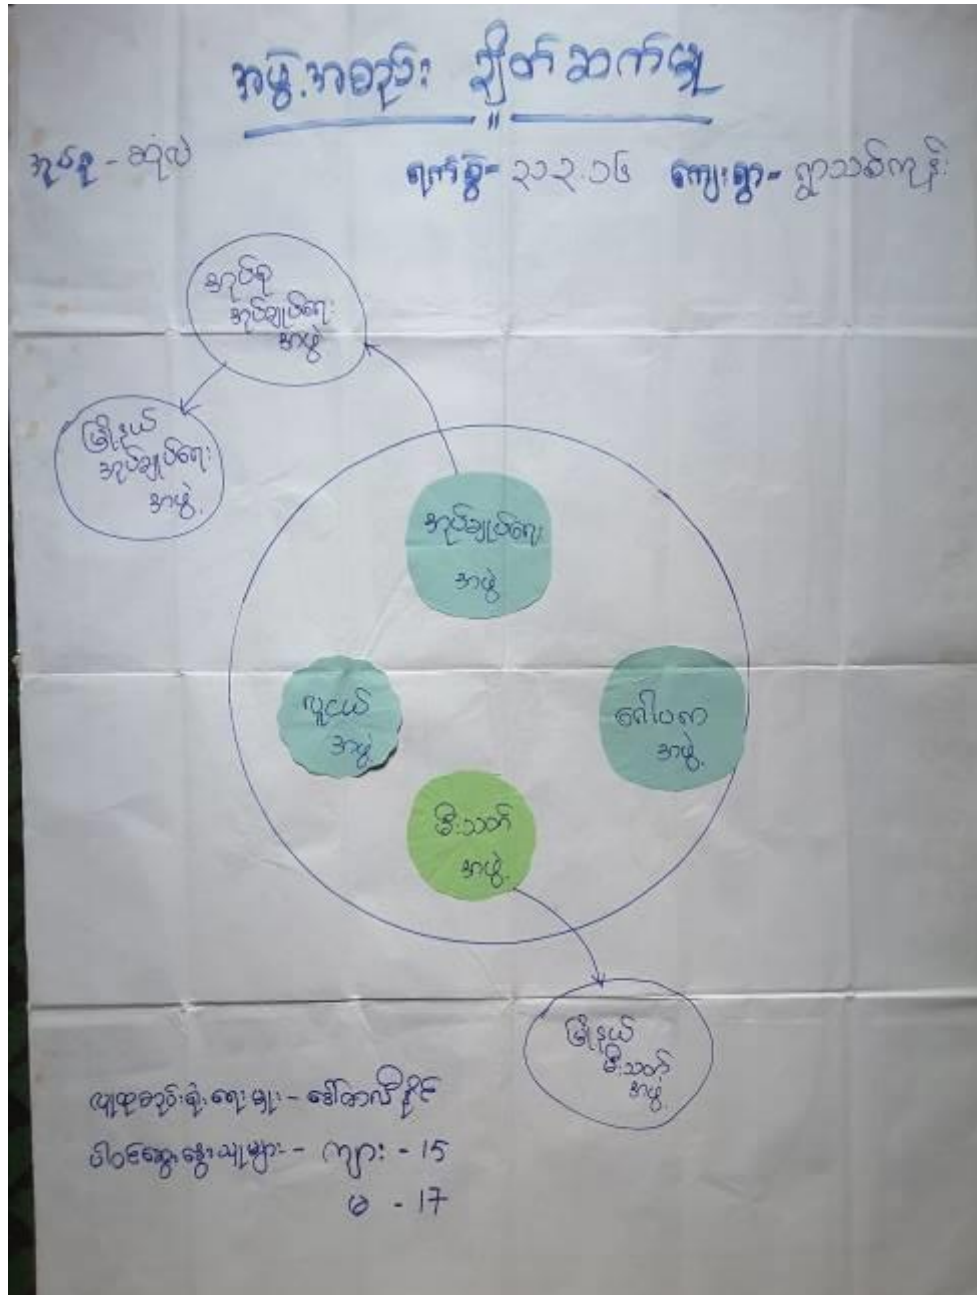 အဖွဲ့အစည်း ချိတ်ဆက်မှု
အုပ်စု - ဆုံလဲ
ရက်စွဲ - ၁၁.၃.၁၆ ကျေးရွာ - ရွာသစ်ကုန်း
အုပ်စု
အုပ်ချုပ်ရေး
အဖွဲ့
မြို့နယ်
အုပ်ချုပ်ရေး
အဖွဲ့
အုပ်ချုပ်ရေး
အဖွဲ့
လူငယ်
အဖွဲ့
ဂေါပက
အဖွဲ့
မီးသတ်
အဖွဲ့
မြို့နယ်
မီးသတ်
အဖွဲ့
လူထုစည်းရုံးရေးမှူး -
ပါဝင်ဆွေးနွေးသူများ - ကျား - 15
မ - 17